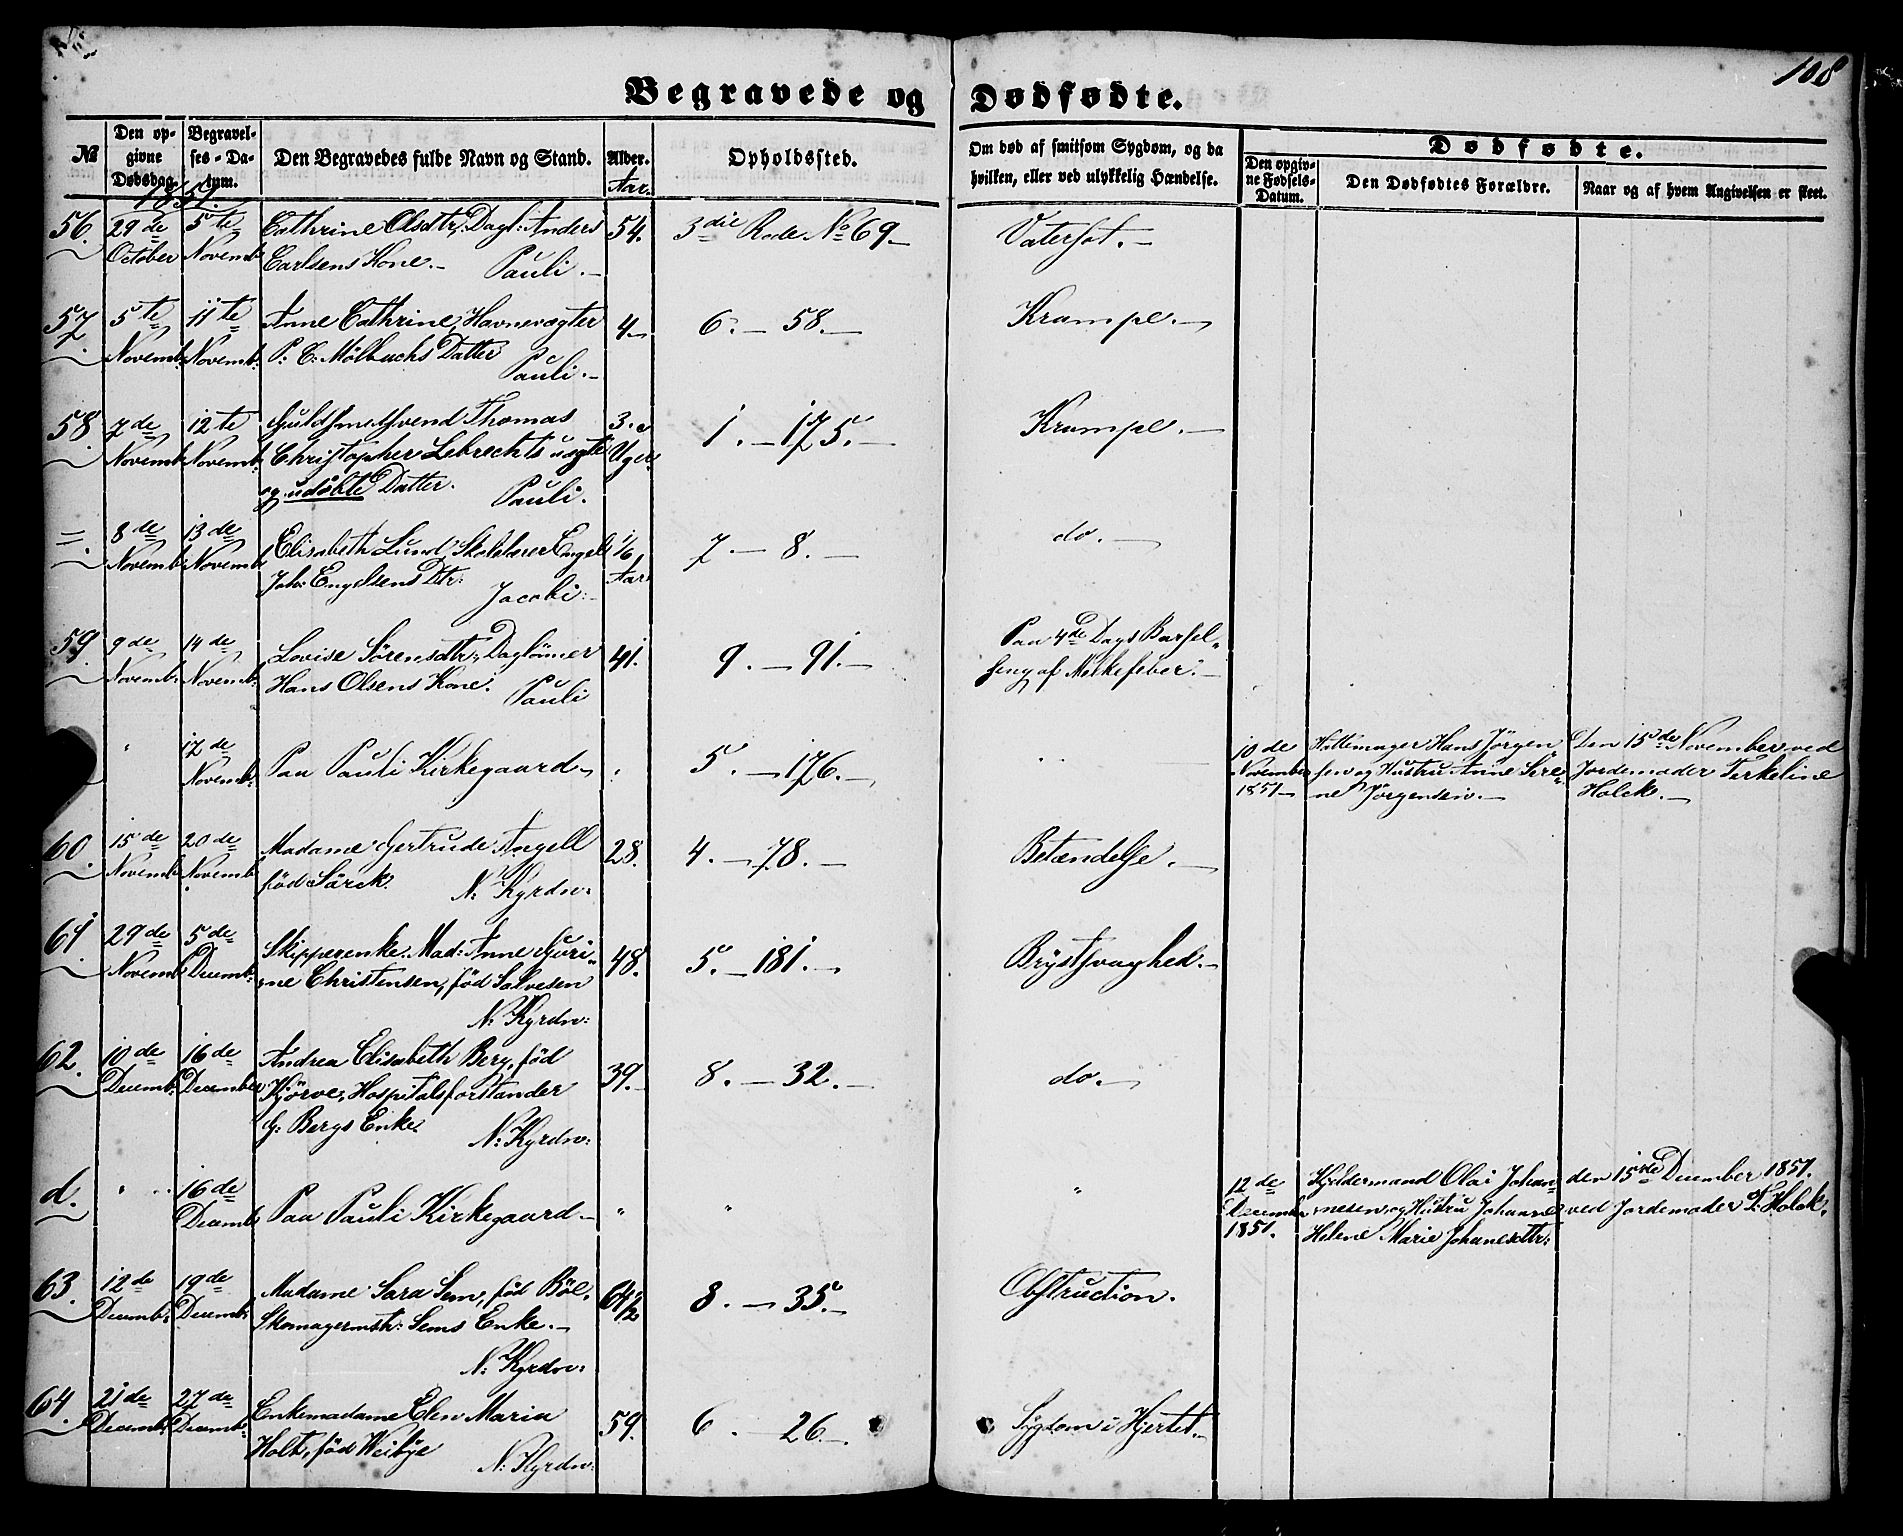 108
Begravede og Dødfødte.
№
Den op-
givne
Dødsdag.
Begravel-
ses-Da-
tum.
Den Begravedes fulde Navn og Stand.
Alder.
Aar.
Opholdssted.
Om død af smitsom Sygdom, og da
hvilken, eller ved ulykkelig Hændelse.
Dødfødte.
Den opgiv-
ne Fødsels-
Datum.
Den Dødfødtes Forældre.
Naar og af hvem Angivelsen er skeet.
1851.
56. 29de 5te Cathrine Olsdtr, Dagl: Anders 54. 3die Rode No 69 Vatersot.
October Novemb: Carlsens Kone. Pauli.
57. 5te 11te Anne Cathrine, Havnevægter 4. 6. 58. Krampe.
Novemb: Novemb: P: C: Mølbachs Datter
Pauli.
58. 7de 12te Guldsmedsvend Thomas 3. 1. 175. Krampe.
Novemb: Novemb: Christopher Lebrechts uægte Uger
og udøbte Datter. Pauli.
=. 8de 13de Elisabeth Lund, Skolelærer Engel 1/6 7. 8. do.
Novemb: Novemb: Joh: Engelsens Dtr: Aar
Jacobi.
59. 9de 14de Lovise Sørensdtr, Daglønner 41. 9. 91. Paa 4de Dags Barsel-
Novemb: Novemb: Hans Olsens Kone. seng af Melkefeber.
Pauli
" 17de Paa Pauli Kirkegaard 5. 176. 10de Hattemager Hans Jørgen- Den 15de November ved
Novemb: November sen og Hustru Anne Sere- Jordemoder Terkeline
1851 ne Jørgensen. Holck.
60. 15de 20de Madame Gertrude Angell 28. 4. 78. Betændelse.
Novemb: Novemb: fød Sørck. N: Kyrdn:
61. 29de 5de Skipperenke Mad: Anne Guri- 48. 5. 181. Brystsvaghed.
Novemb: Decemb: ne Christensen, fød Salvesen
N: Kyrdn:
62. 10de 16de Andrea Elisabeth Berg, fød 39. 8. 32. do.
Decemb: December Kjørve, Hospitalsforstander
G: Bergs Enke. N: Kyrdn:
d. " 16de Paa Pauli Kirkegaard " " " 12de Kjeldermand Olai Johan- den 15de December 1851.
Decemb: December nesen og Hustru Johanne ved Jordemoder T: Holck.
1851. Helene Marie Johanesdtr:
63. 12de 19de Madame Sara Sem, fød Bøl. 64½ 8. 35. Obstruction.
Decemb: Decemb: Skomagermstr: Sems Enke.
N: Kyrdn:
64. 21de 27de Enkemadame Elen Maria 59. 6. 26. Sygdom i Hjertet.
Decemb: Decemb: Holt, fød Weibye
N: Kyrdn: